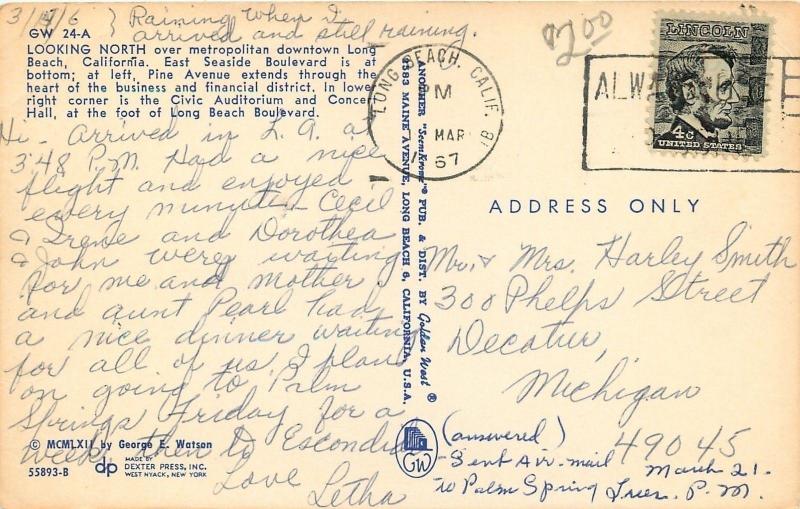 Raining when I
arrived and still raining.
GW 24-A
LOOKING NORTH over metropolitan downtown Long
Beach, California. East Seaside Boulevard is at
bottom; at left, Pine Avenue extends through the
heart of the business and financial district. In lower
right corner is the Civic Auditorium and Concert
Hall, at the foot of Long Beach Boulevard.
Hi - Arrived in L.A. at
3:48 P.M. Had a nice
flight and enjoyed
every minute - Cecil
& Irene and Dorothea
& John were waiting
for me and mother
and aunt Pearl had
a nice dinner waiting
for all of us. I plan
on going to Palm
Springs Friday for a
week, then to Escondido
Love
Letha
© MCMLXII by George E. Watson
55893-B
dp
MADE BY
DEXTER PRESS, INC.
WEST NYACK, NEW YORK
ANOTHER "SceniKrome" PUB. & DIST. BY Golden West ®
MAINE AVENUE, LONG BEACH 6, CALIFORNIA, U.S.A.
GW
LONG BEACH, CALIF.
PM
MAR
1967
2.00
LINCOLN
4c
UNITED STATES
ALW
ADDRESS ONLY
Mr. & Mrs. Harley Smith
300 Phelps Street
Decatur,
Michigan
49045
(answered)
Sent Air-mail March 21.
to Palm Spring Tues. P.M.